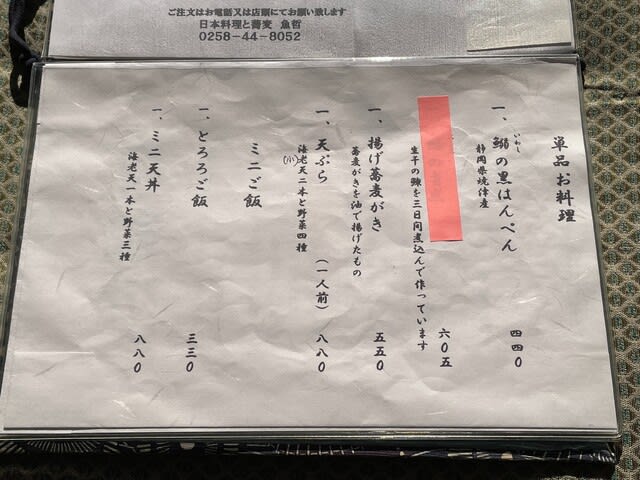 ご注文はお電話又は店頭にてお願い致します
日本料理と蕎麦　魚哲
0258-44-8052
単品お料理
一、鰯の黒はんぺん　四四〇
いわし
静岡県焼津産
六〇五
生干の鰊を三日間煮込んで作っています
一、揚げ蕎麦がき　五五〇
蕎麦がきを油で揚げたもの
一、天ぷら（一人前）　八八〇
海老天(小)二本と野菜四種
ミニご飯
一、とろろご飯　三三〇
一、ミニ天丼　八八〇
海老天一本と野菜三種